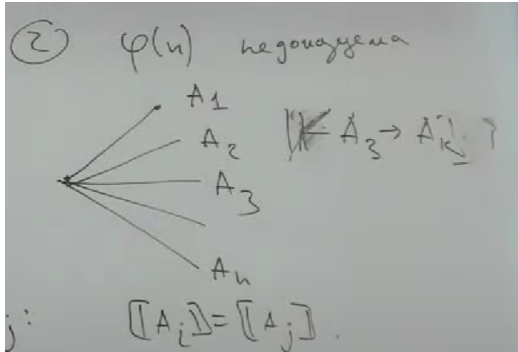 ② φ(n) недоказуема
A1
A2
⊢ A3 → Ak ?
A3
An
j: ⟦Ai⟧ = ⟦Aj⟧.